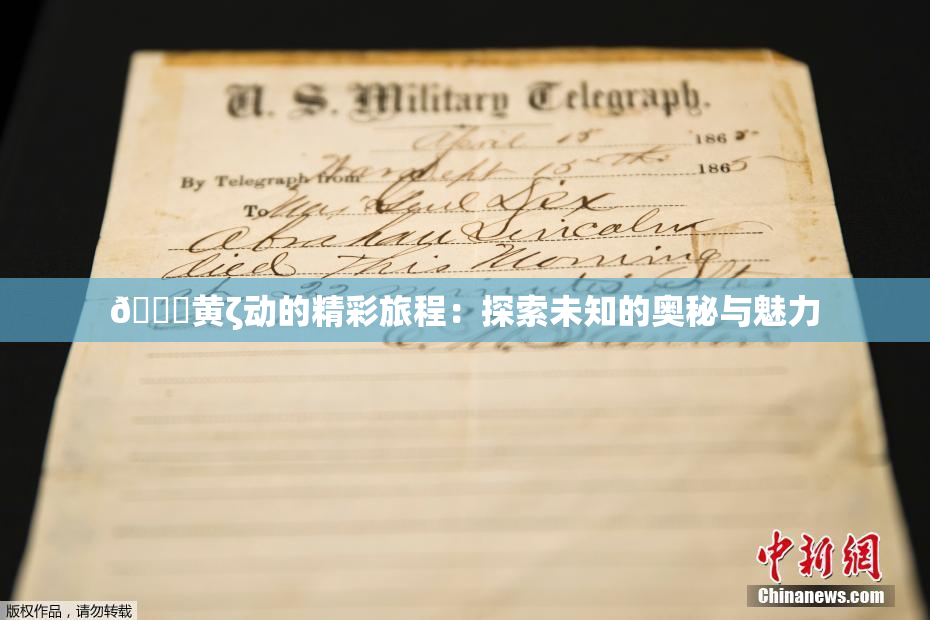 U. S. Military Telegraph.
April 15 1865
By Telegraph from War Dept 15th 1865
To Maj Genl Dix
Abraham Lincoln
died This Morning
at 22 minutes after
ð黄ζ动的精彩旅程：探索未知的奥秘与魅力
E. M. Stanton
中新网
Chinanews.com
版权作品，请勿转载